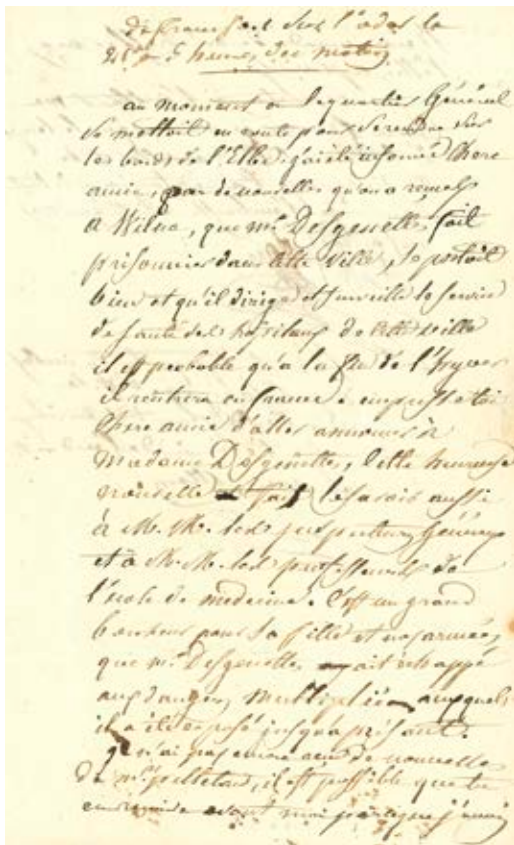 de francfort sur l'oder le
à 5 heures du matin
au moment ou le quartier Général
se mettoit en route pour se rendre sur
les bords de l'Elbe, j'ai été informé chere
amie, par de nouvelles qu'on a
a Wilna, que mr. Desgenettes, fait
prisonnier dans cette ville, se portoit
bien et qu'il dirige et surveille le service
de santé des hopitaux de cette ville
il est probable qu'a la fin de l'hyver
il rentrera en france. empresse toi
chere amie d'aller annoncer à
Madame Desgenettes, cette heureuse
nouvelle fais le savoir aussi
à M. M. les inspecteurs généraux
et à M. M. les professeurs de
l'école de medecine. c'est un grand
bonheur pour sa fille et nos armées,
que mr. Desgenettes ait échappé
aux dangers multipliés auxquels
il a été exposé jusqu'a présent.
je n'ai pas encore de nouvelles
de mr. pelletan, il est possible que tu
en avant moi parceque j'aurai